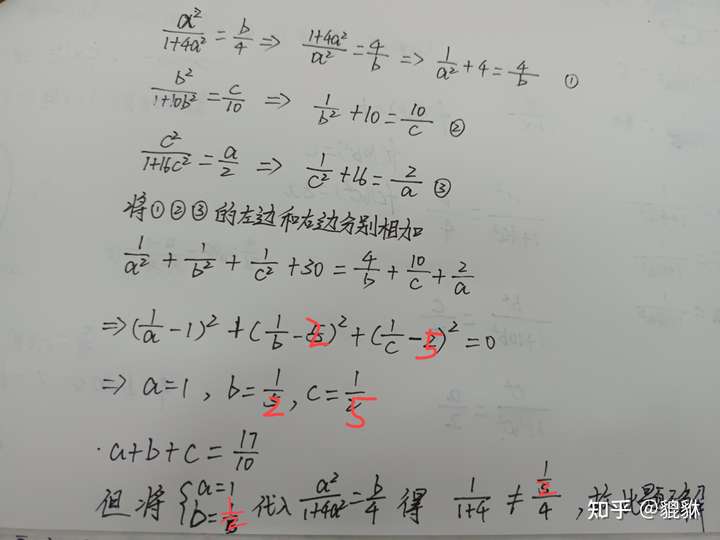 a²/(1+4a²) = b/4 ⇒ (1+4a²)/a² = 4/b ⇒ 1/a² + 4 = 4/b ①
b²/(1+10b²) = c/10 ⇒ 1/b² + 10 = 10/c ②
c²/(1+16c²) = a/2 ⇒ 1/c² + 16 = 2/a ③
将①②③的左边和右边分别相加
1/a² + 1/b² + 1/c² + 30 = 4/b + 10/c + 2/a
⇒ (1/a − 1)² + (1/b − 2)² + (1/c − 5)² = 0
⇒ a = 1, b = 1/2, c = 1/5
∴ a+b+c = 17/10
但将 { a=1 b=1/5 代入 a²/(1+4a²) = b/4 得 1/(1+4) ≠ (1/5)/4, 故此题无解
知乎 @貔貅